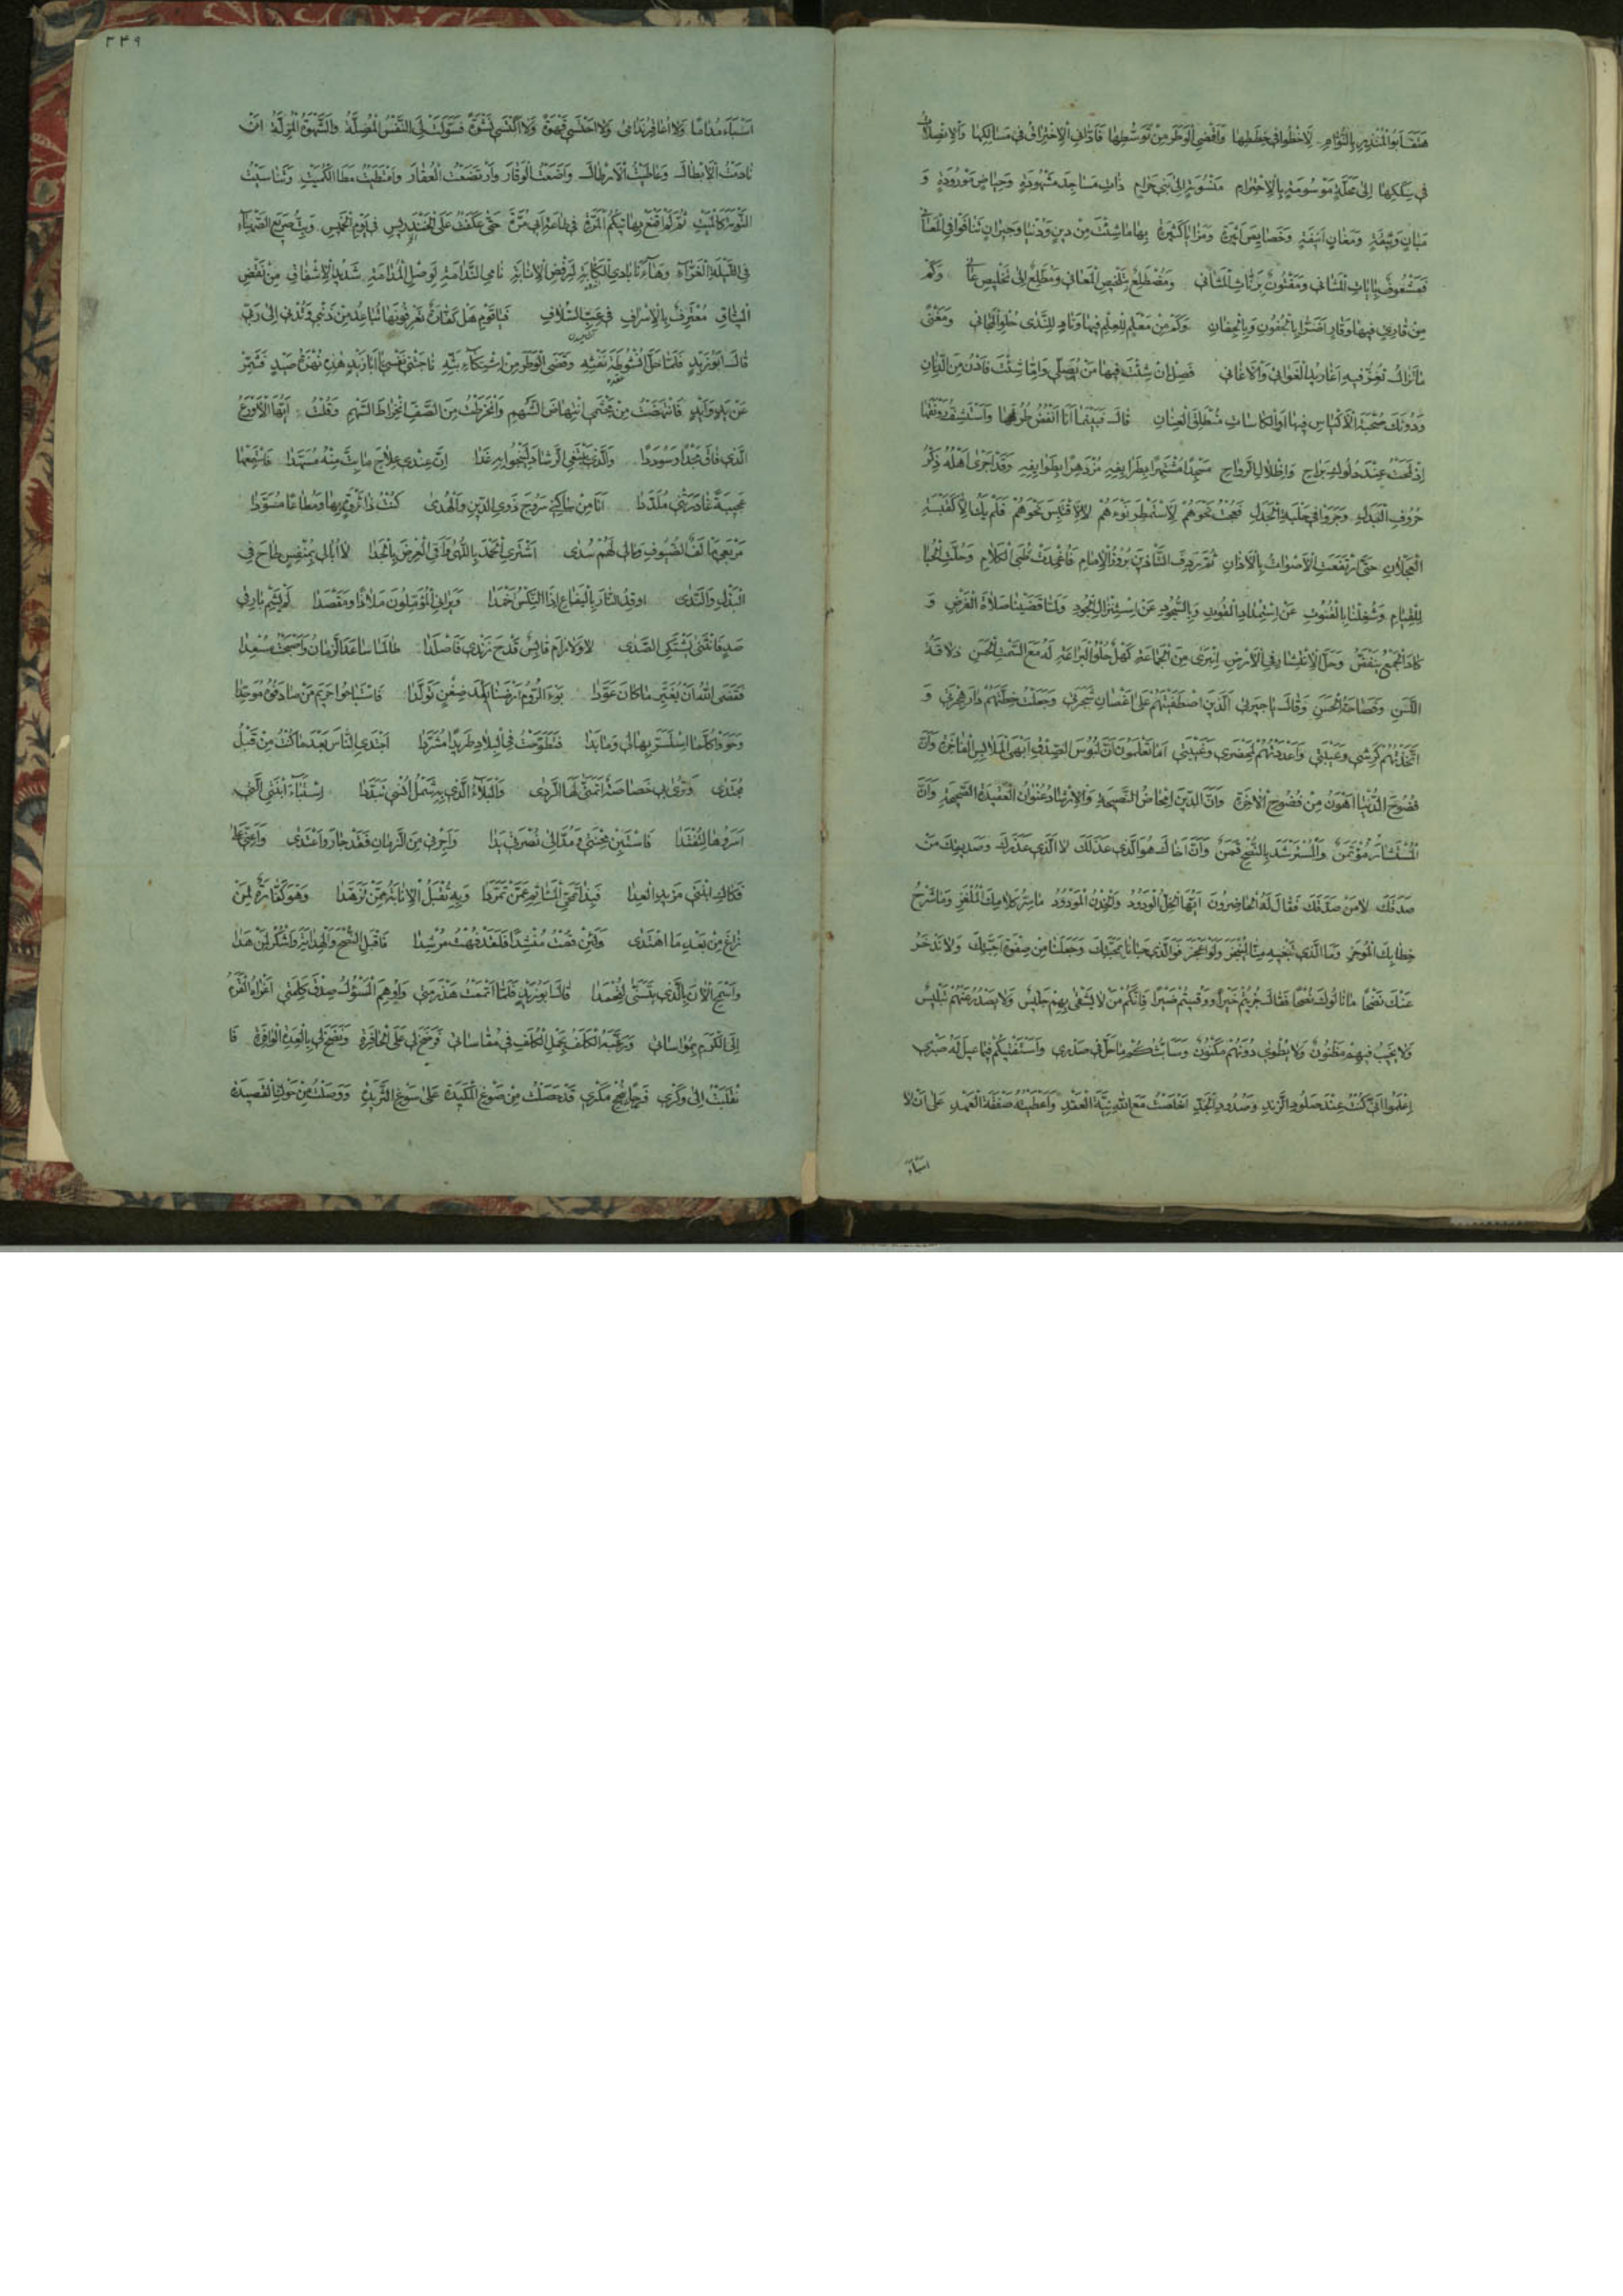 هتف ابو المنذر بالنوام لاخطو في خططها واقضي الوطر من توسطها فاداني الاختراق في مسالكها والانصلات
في سككها الى محلة موسومة بالاحترام منسوبة الى بني حرام ذات مساجد مشهودة وحياض مورودة و
مبان وثيقة ومغان انيقة وخصايص اثيرة ومزايا كثيرة بها ما شئت من دين ودنيا وجيران تنافوا في المعاني
فمشغوف بايات المثاني ومفتون برنات المثاني ومضطلع بتلخيص المعاني ومطلع الى تخليص عاني وكم
من قاري فيها وقار اضرا بالجفون وبالجفان وكم من معلم للعلم فيها وناد للندى حلو المجاني ومغنى
ما تزال تغن فيه اغاريد الغواني والاغاني فصل ان شئت فيها من يصلي واما شئت فادن من الدنان
ودونك صحبة الاكياس فيها او الكاسات منطلق العنان قال فبينما انا انفض طرقها واستشف رونقها
اذ لمحت عند دلوك براح واظلال الرواح مسجدا مشتهرا بطرايفه مزدهرا بطوايفه وقد اجرى اهله ذكر
حروف البدل وجروا في حلبة الجدل فعجت نحوهم لاستمطر نوءهم لا لاقتبس نحوهم فلم يك الا كقبسة
العجلان حتى ارتفعت الاصوات بالاذان ثم ردف التاذين بروز الامام فاغمدت ظبى الكلام وحلت الحبا
للقيام وشغلنا بالقنوت عن استمداد القوت وبالسجود عن استنزال الجود ولما قضينا صلاة الفرض و
كاد الجمع ينفض وحل الانتشار في الارض انبرى من الجماعة كهل حلو البراعة له مع السمت الحسن ذلاقة
اللسن وفصاحة الحسن وقال يا جيرتي الذين اصطفيتهم على اغصان شجرتي وجعلت خطتهم دار هجرتي و
اتخذتهم كرشي وعيبتي واعددتهم لمحضري وغيبتي اما تعلمون ان لبوس الصدق ابهى الملابس الفاخرة وان
فضوح الدنيا اهون من فضوح الاخرة وان الدين امحاض النصيحة والارشاد عنوان العقيدة الصحيحة وان
المستشار مؤتمن والمسترشد بالنصح قمن وان اخاك هو الذي عذلك لا الذي عذرك وصديقك من
صدقك لا من صدقك فقال له الحاضرون ايها الخل الودود والخدن المودود ما سر كلامك الملغز وما شرح
خطابك الموجز وما الذي تبغيه منا لينجز ولو اعجز فوالذي حبانا بمحبتك وجعلنا من صفوة احبتك ولا ندخر
عنك نضحا ما نالوك نصحا فقال جزيتم خيرا ووقيتم ضيرا فانكم من لا يشقى بهم جليس ولا يصدر عنهم تلبيس
ولا يخيب فيهم مظنون ولا يطوى دونهم مكنون وسابثكم ما حاك في صدري واستفتيكم فيما عيل له صبري
اعلموا اني كنت عند صلود الزند وصدود الجد اخلصت مع الله نية العقد واعطيته صفقة العهد على ان لا
اسباء
٣٤٩
اسباء مداما ولا اعاقر ندامى ولا احتسي قهوة ولا اكتسي نشوة فسولت لي النفس المضلة والشهوة المزلة ان
نادمت الابطال وعاطيت الارطال واضعت الوقار وارتضعت العقار وامتطيت مطا الكميت وتناسيت
التوبة كالميت ثم لم اقنع بهاتيكم المرة في طاعة ابي مرة حتى عكفت على الخندريس في يوم الخميس وبت صريع الصهباء
في الليلة الغراء وها انا بادي الكابة لرفض الانابة نامي الندامة لوصل المدامة شديد الاشفاق من نقض
الميثاق معترف بالاسراف في عب السلاف فيا قوم هل كفارة تعرفونها تباعد من ذنبي وتدني الى ربي
قال ابو زيد فلما حل انشوطة نفثه وقضى الوطر من اشتكاء بثه ناجتني نفسي يا ابا زيد هذه نهزة صيد فشمر
عن يد وايد فانتهضت من مجثمي انتهاض الشهم وانخرطت من الصف انخراط السهم وقلت ايها الاروع
الذي فاق مجدا وسوددا والذي يبتغي الرشاد لينجو به غدا ان عندي علاج ما بت منه مسهدا فاستمعها
عجيبة غادرتني ملددا انا من ساكني سروج ذوي الدين والهدى كنت ذا ثروة بها ومطاعا مسودا
مربعي مالف الضيوف ومالي لهم سدى اشتري الحمد باللهى واقي العرض بالجدا لا ابالي بمنفس طاح في
البذل والندى اوقد النار باليفاع اذا النكس اخمدا ويراني المؤملون ملاذا ومقصدا لم يشم بارقي
صد فانثنى يشتكي الصدى لا ولا رام قابس قدح زندي فاصلدا طالما ساعد الزمان واصبحت مسعدا
فقضى الله ان يغير ما كان عودا بوء الروم ارضنا بعد ضغن تولدا فاستباحوا حريم من صادفوه موحدا
وحووا كلما استسر بها لي وما بدا فتطوحت في البلاد طريدا مشردا اجتدي الناس بعد ما كنت من قبل
مجتدى وترى بي خصاصة اتمنى لها الردى والبلاء الذي به شمل انسي تبددا استباء ابنتي التي
اسروها لتفتدا فاستبن محنتي ومد الى نصرتي يدا واجرني من الزمان فقد جار واعتدى واعني على
فكاك ابنتي من يد العدا فبذا تنمحي الماثم عمن تمردا وبه تقبل الانابة ممن تزهدا وهو كفارة لمن
زاغ من بعد ما اهتدى ولئن قمت منشدا فلقد فهت مرشدا فاقبل النصح والهداية واشكر لمن هدا
واسمح الان بالذي يتسنى لتحمدا قال ابو زيد فلما اتممت هذرمتي واوهم المسؤل صدق كلمتي اغراه القرم
الى الكرم بمواساتي ورغبه الكلف بحمل الكلف في مقاساتي فرضخ لي على الحافرة ونضح لي بالعدة الوافرة فا
نقلبت الى وكري فرحا بنجح مكري قد حصلت من صوغ المكيدة على سوغ الثريدة ووصلت من حوك القصيدة